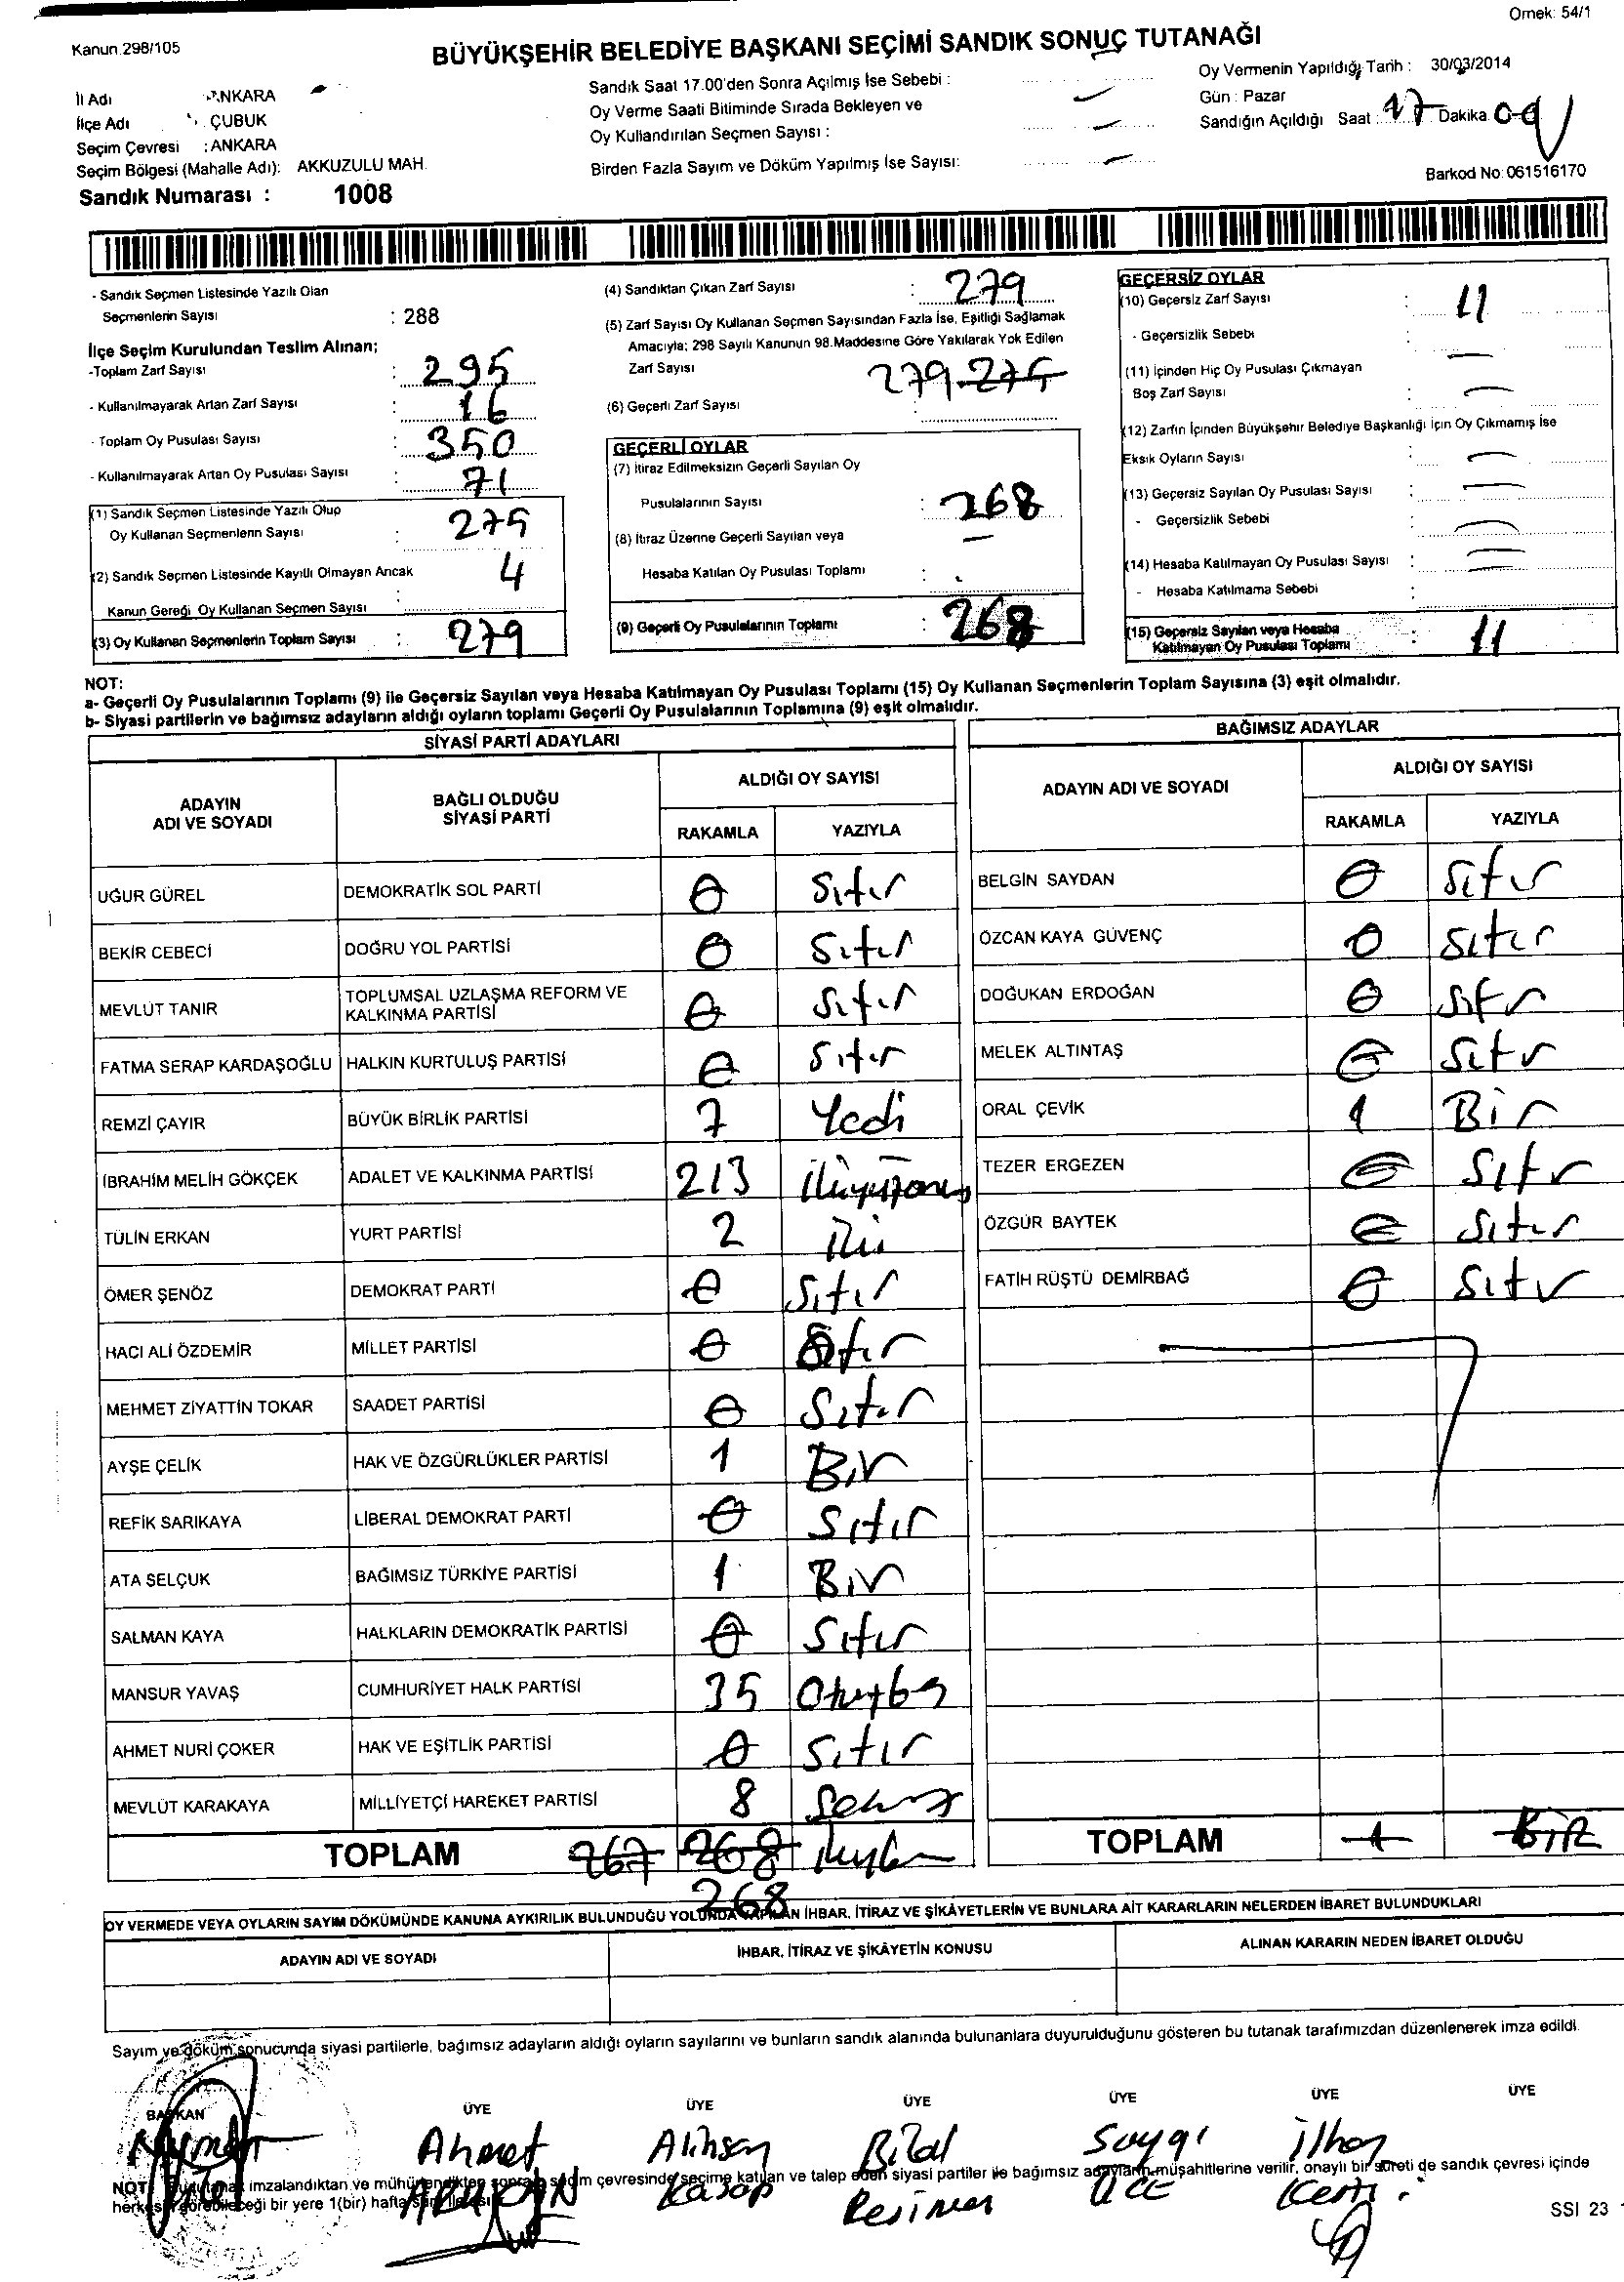 Örnek: 54/1
Kanun 298/105
BÜYÜKŞEHİR BELEDİYE BAŞKANI SEÇİMİ SANDIK SONUÇ TUTANAĞI
İl Adı ANKARA
İlçe Adı ÇUBUK
Seçim Çevresi : ANKARA
Seçim Bölgesi (Mahalle Adı): AKKUZULU MAH.
Sandık Numarası : 1008
Sandık Saat 17.00'den Sonra Açılmış İse Sebebi :
Oy Verme Saati Bitiminde Sırada Bekleyen ve
Oy Kullandırılan Seçmen Sayısı :
Birden Fazla Sayım ve Döküm Yapılmış İse Sayısı:
Oy Vermenin Yapıldığı Tarih : 30/03/2014
Gün : Pazar
Sandığın Açıldığı Saat : 17 Dakika
Barkod No: 061516170
- Sandık Seçmen Listesinde Yazılı Olan
Seçmenlerin Sayısı : 288
İlçe Seçim Kurulundan Teslim Alınan;
-Toplam Zarf Sayısı : 295
- Kullanılmayarak Artan Zarf Sayısı : 16
- Toplam Oy Pusulası Sayısı : 350
- Kullanılmayarak Artan Oy Pusulası Sayısı : 71
(1) Sandık Seçmen Listesinde Yazılı Olup
Oy Kullanan Seçmenlerin Sayısı : 275
(2) Sandık Seçmen Listesinde Kayıtlı Olmayan Ancak
Kanun Gereği Oy Kullanan Seçmen Sayısı : 4
(3) Oy Kullanan Seçmenlerin Toplam Sayısı : 279
(4) Sandıktan Çıkan Zarf Sayısı : 279
(5) Zarf Sayısı Oy Kullanan Seçmen Sayısından Fazla İse, Eşitliği Sağlamak
Amacıyla; 298 Sayılı Kanunun 98.Maddesine Göre Yakılarak Yok Edilen
Zarf Sayısı
279 275
(6) Geçerli Zarf Sayısı :
GEÇERLİ OYLAR
(7) İtiraz Edilmeksizin Geçerli Sayılan Oy
Pusulalarının Sayısı : 268
(8) İtiraz Üzerine Geçerli Sayılan veya
Hesaba Katılan Oy Pusulası Toplamı :
(9) Geçerli Oy Pusulalarının Toplamı : 268
GEÇERSİZ OYLAR
(10) Geçersiz Zarf Sayısı : 11
- Geçersizlik Sebebi
(11) İçinden Hiç Oy Pusulası Çıkmayan
Boş Zarf Sayısı :
(12) Zarfın İçinden Büyükşehir Belediye Başkanlığı İçin Oy Çıkmamış İse
Eksik Oyların Sayısı :
(13) Geçersiz Sayılan Oy Pusulası Sayısı :
- Geçersizlik Sebebi
(14) Hesaba Katılmayan Oy Pusulası Sayısı :
- Hesaba Katılmama Sebebi :
(15) Geçersiz Sayılan veya Hesaba
Katılmayan Oy Pusulası Toplamı : 11
NOT:
a- Geçerli Oy Pusulalarının Toplamı (9) ile Geçersiz Sayılan veya Hesaba Katılmayan Oy Pusulası Toplamı (15) Oy Kullanan Seçmenlerin Toplam Sayısına (3) eşit olmalıdır.
b- Siyasi partilerin ve bağımsız adayların aldığı oyların toplamı Geçerli Oy Pusulalarının Toplamına (9) eşit olmalıdır.
SİYASİ PARTİ ADAYLARI
ADAYIN ADI VE SOYADI BAĞLI OLDUĞU SİYASİ PARTİ ALDIĞI OY SAYISI
RAKAMLA YAZIYLA
UĞUR GÜREL DEMOKRATİK SOL PARTİ 0 Sıfır
BEKİR CEBECİ DOĞRU YOL PARTİSİ 0 Sıfır
MEVLÜT TANIR TOPLUMSAL UZLAŞMA REFORM VE KALKINMA PARTİSİ 0 Sıfır
FATMA SERAP KARDAŞOĞLU HALKIN KURTULUŞ PARTİSİ 0 Sıfır
REMZİ ÇAYIR BÜYÜK BİRLİK PARTİSİ 7 Yedi
İBRAHİM MELİH GÖKÇEK ADALET VE KALKINMA PARTİSİ 213
TÜLİN ERKAN YURT PARTİSİ 2 İki
ÖMER ŞENÖZ DEMOKRAT PARTİ 0 Sıfır
HACI ALİ ÖZDEMİR MİLLET PARTİSİ 0 Sıfır
MEHMET ZİYATTİN TOKAR SAADET PARTİSİ 0 Sıfır
AYŞE ÇELİK HAK VE ÖZGÜRLÜKLER PARTİSİ 1 Bir
REFİK SARIKAYA LİBERAL DEMOKRAT PARTİ 0 Sıfır
ATA SELÇUK BAĞIMSIZ TÜRKİYE PARTİSİ 1 Bir
SALMAN KAYA HALKLARIN DEMOKRATİK PARTİSİ 0 Sıfır
MANSUR YAVAŞ CUMHURİYET HALK PARTİSİ 35 Otuzbeş
AHMET NURİ ÇOKER HAK VE EŞİTLİK PARTİSİ 0 Sıfır
MEVLÜT KARAKAYA MİLLİYETÇİ HAREKET PARTİSİ 8 Sekiz
TOPLAM 267 268
268
BAĞIMSIZ ADAYLAR
ADAYIN ADI VE SOYADI ALDIĞI OY SAYISI
RAKAMLA YAZIYLA
BELGİN SAYDAN 0 Sıfır
ÖZCAN KAYA GÜVENÇ 0 Sıfır
DOĞUKAN ERDOĞAN 0 Sıfır
MELEK ALTINTAŞ 0 Sıfır
ORAL ÇEVİK 1 Bir
TEZER ERGEZEN 0 Sıfır
ÖZGÜR BAYTEK 0 Sıfır
FATİH RÜŞTÜ DEMİRBAĞ 0 Sıfır
TOPLAM 1 BİR
OY VERMEDE VEYA OYLARIN SAYIM DÖKÜMÜNDE KANUNA AYKIRILIK BULUNDUĞU YOLUNDA YAPILAN İHBAR, İTİRAZ VE ŞİKÂYETLERİN VE BUNLARA AİT KARARLARIN NELERDEN İBARET BULUNDUKLARI
ADAYIN ADI VE SOYADI İHBAR, İTİRAZ VE ŞİKÂYETİN KONUSU ALINAN KARARIN NEDEN İBARET OLDUĞU
Sayım ve döküm sonucunda siyasi partilerle, bağımsız adayların aldığı oyların sayılarını ve bunların sandık alanında bulunanlara duyurulduğunu gösteren bu tutanak tarafımızdan düzenlenerek imza edildi.
BAŞKAN ÜYE ÜYE ÜYE ÜYE ÜYE ÜYE
Ahmet Alihsan Bilal Saygı İlhan
NOT: Bu tutanak imzalandıktan ve mühürlendikten sonra seçim çevresinde seçime katılan ve talep eden siyasi partiler ile bağımsız adayların müşahitlerine verilir, onaylı bir sureti de sandık çevresi içinde
herkesin görebileceği bir yere 1(bir) hafta
Kasap
SSI 23